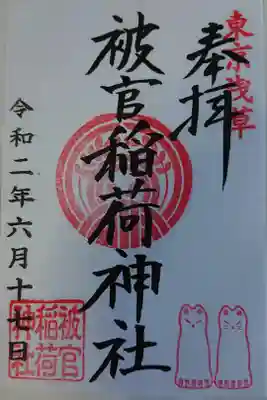 東京浅草
奉拝
被官稲荷神社
令和二年六月十七日
被官
稲荷
神社